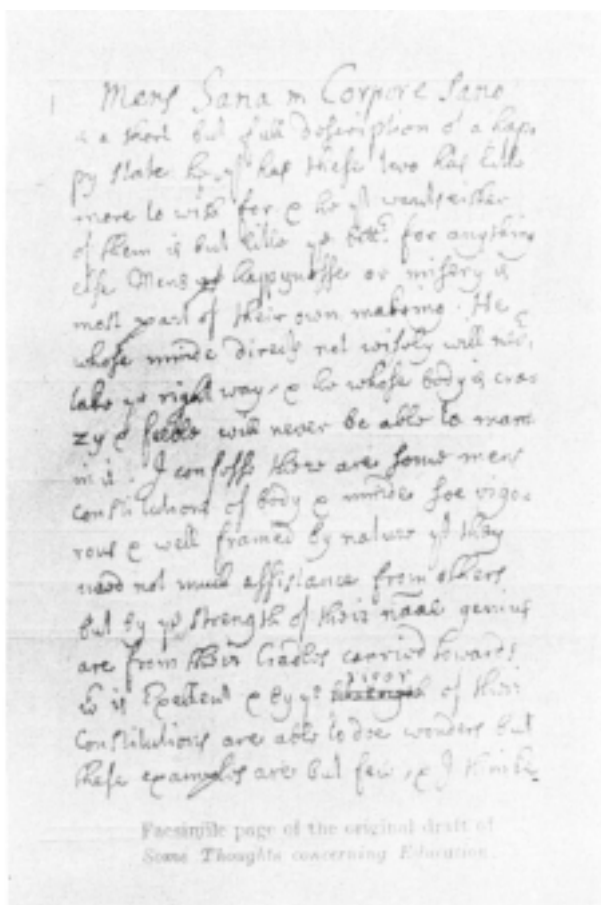 Mens Sana in Corpore Sano
is a short but full description of a hap-
py state he yt has these two has litle
more to wish for & he yt wants either
of them is but litle ye bettr for anything
else Mens happynesse or misery is
most part of their own makeing. He
whose minde directs not wisely will
take ye right way, & he whose body is cra-
zy & feeble will never be able to
in it. I confesse there are some mens
constitutions of body & minde soe vigo-
rous & well framed by nature yt they
need not much assistance from others
but by ye strength of their genius
are from their Cradles carried towards
wt is Excellent & by ye vigor of their
Constitutions are able to doe wonders but
these examples are but few, & I thinke
Facsimile page of the original draft of
Some Thoughts concerning Education.